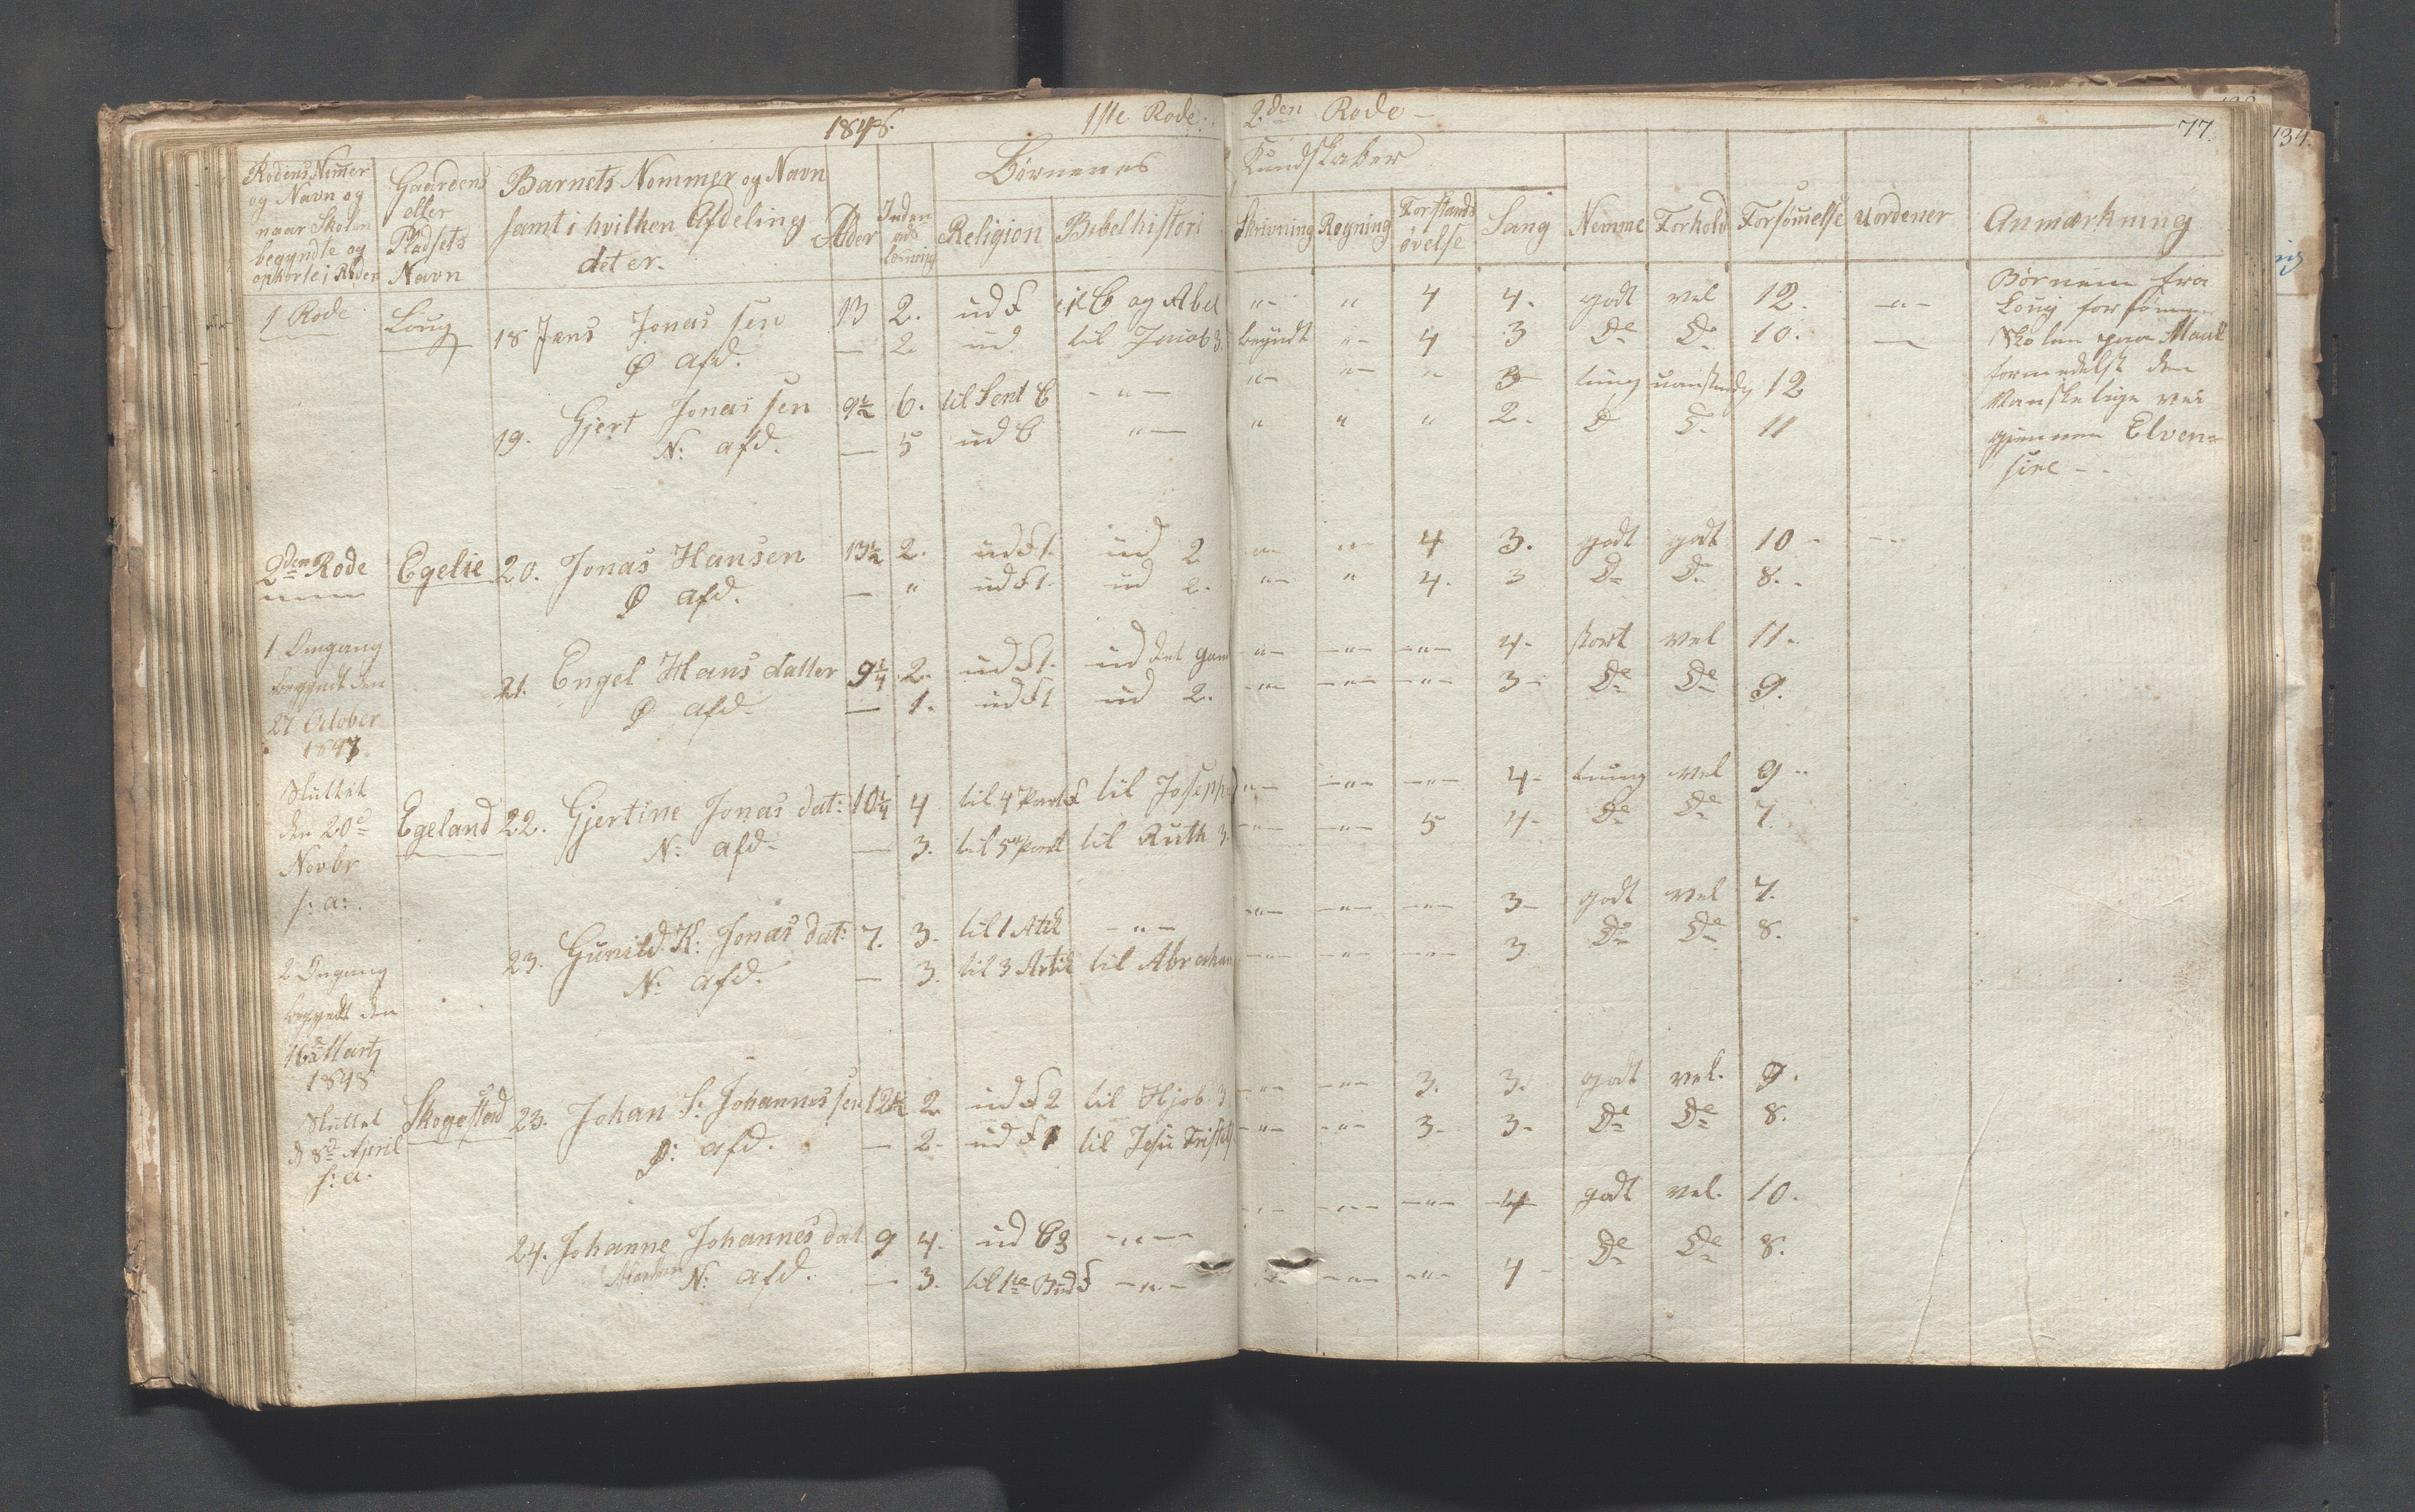 1848. 1ste Rode. 2den Rode 77.
134.
Rodens Nummer og Navn og naar Skolen begyndte og ophørte i Roden
Gaardens eller Pladsets Navn
Barnets Nommer og Navn samt i hvilken Afdeling det er.
Alder
Inden ads Læsning
Børnenes Kundskaber
Religion Bibelhistori Skrivning Regning Forstands øvelse Sang Nemme Forhold Forsømmelse Uordener Anmærkning
1 Rode Loug 18 Jens Jonas sen 13 2. ud F til C og Abel " " 4 4. godt vel 12. "
Ø afd. — 2 ud til Jacob 3. begyndt " 4 3 Do Do 10. —
19. Gjert Jonas sen 9½ 6. til Sent C " " " " 3 tung uanstændig 12
N: afd. — 5 ud C " " " " 2. Do Do 11
Børnene fra
Loug forsømmer
Skolen paa Maal
formedelst den
Vanskelige vei
gjennem Elven=
juvet
2den Rode Egelie 20. Jonas Hansen 13½ 2. ud F 1. ud 2 " " 4 3. godt godt 10 "
Ø afd. — " ud F 1. ud 2. " " 4. 3 Do Do 8.
1 Omgang
begyndt den
27 October
1847.
21. Engel Hans datter 9¼ 2. ud F 1. ud det gam " " " 4. stort vel 11.
Ø afd. — 1. ud F 1 ud 2. " " " 3 Do Do 9.
Sluttet
den 20de
Novbr
s: a:.
Egeland 22. Gjertine Jonas dat: 10¼ 4 til 4 Part F til Joseph " " " 4 tung vel 9
N: afd. — 3. til 5 Part til Ruth 3. " " 5 4 Do Do 7.
23. Gunild K: Jonas dat: 7. 3. til 1 Artik " " " " 3 godt vel 7.
N: afd. — 3. til 3 Artik til Abraham " " " 3 Do Do 8.
2 Omgang
begyndt den
16de Martz
1848
Sluttet
d 8de April
s: a.
Skogestad 23. Johan S: Johannes sen 12½ 2. ud F 2 til Hjob 3 " " 3. 3. godt vel. 9.
Ø: afd. — 2. ud F 1 til Jesu Fristels " " 3. 3. Do Do 8.
24. Johanne Johannes dat 9 4. ud C 3 " " " " 4 godt vel. 10.
N: afd. — 3. til 1te Bud F " " " " 4 Do Do 8.